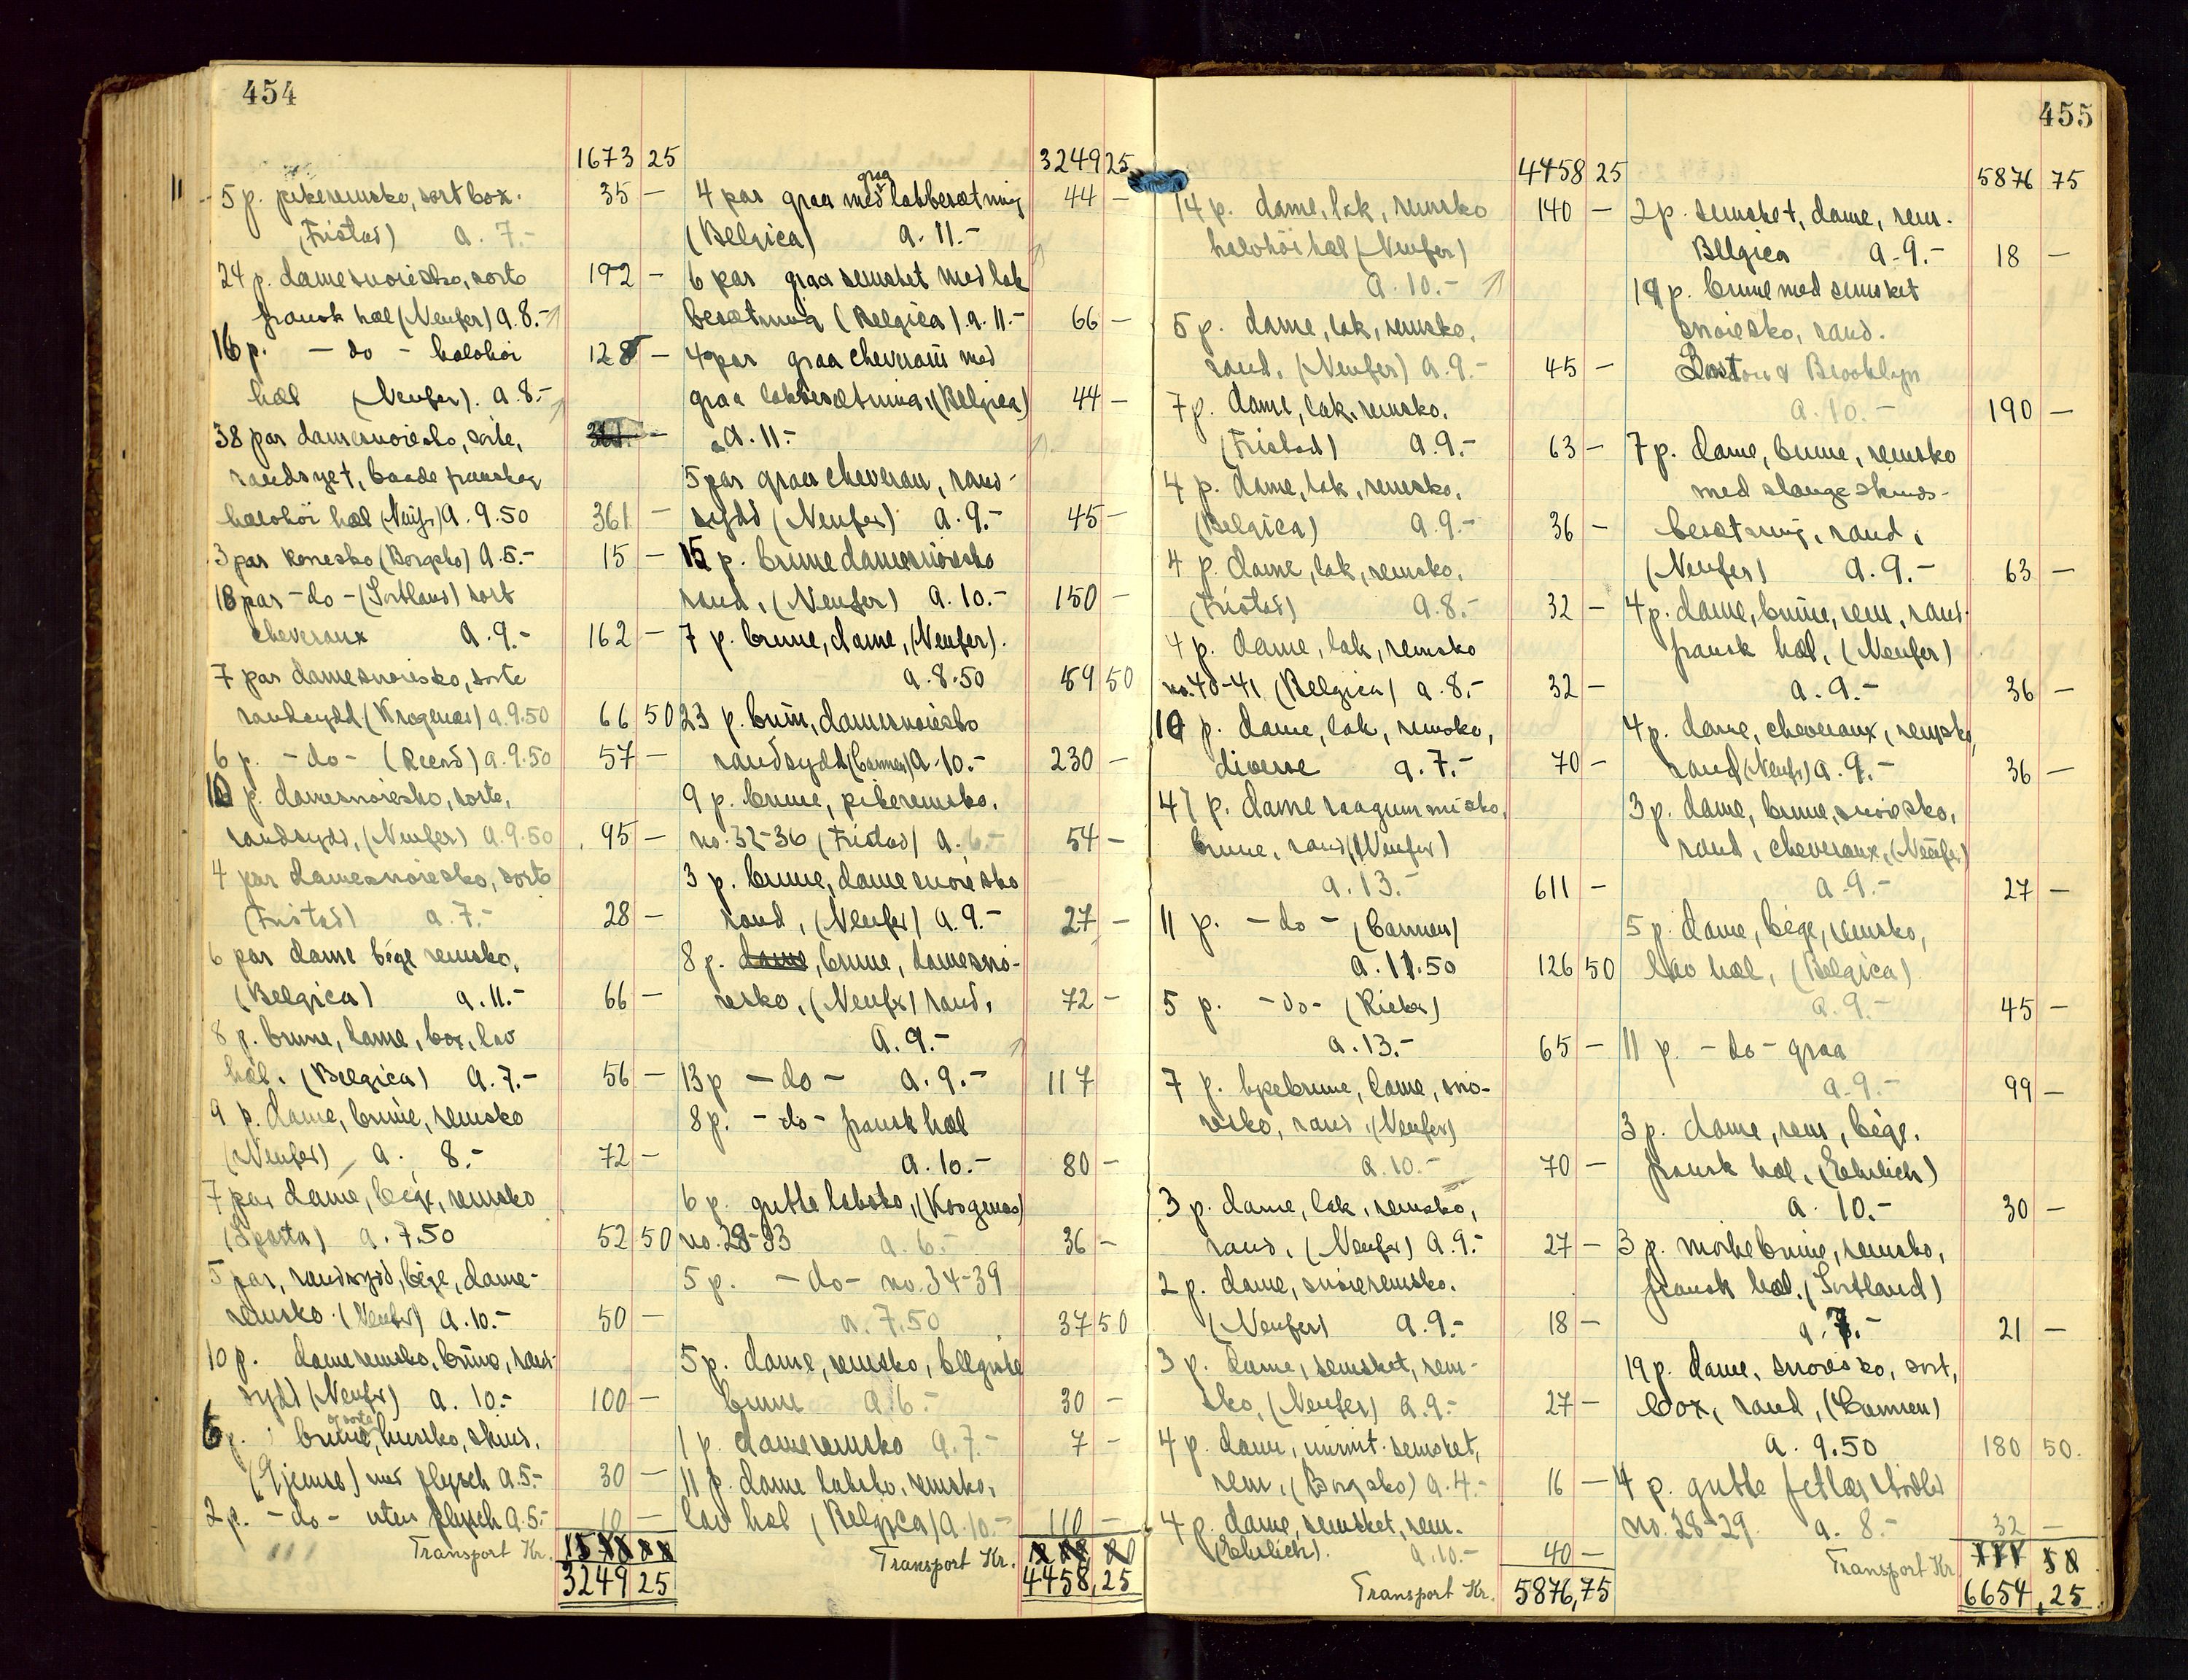 454
1673 25
5 p. pikeremsko, sort box. 35 —
(Fristad) a. 7.-
24 p. damesnøiesko, sorte 192 —
fransk hæl (Neufer) a. 8.-
16 p. - do - halvhøi 128 —
hæl (Neufer). a. 8.-
38 par damesnøiesko, sorte,
randsyet, baade fransk og
halvhøi hæl (Neufer) a. 9.50 361 —
3 par konesko (Borgsko) a. 5.- 15 —
18 par - do - (Sortland) sort
cheveraux a. 9.- 162 —
7 par damesnøiesko, sorte
randsydd (Krogenæs) a. 9.50 66 50
6 p. - do - a. 9.50 57 —
10 p. damesnøiesko, sorte,
randsydd, (Neufer) a. 9.50 95 —
4 par damesnøiesko, sorte
(Fristad) a. 7.- 28 —
6 par dame bége remsko,
(Belgica) a. 11.- 66 —
8 p. brune, dame, box, lav
hæl. (Belgica) a. 7.- 56 —
9 p. dame, brune, remsko
(Neufer) a. 8.- 72 —
7 par dame, bége, remsko
(Sparta) a. 7.50 52 50
5 par, randsydd, bége, dame-
remsko (Neufer) a. 10.- 50 —
10 p. dameremsko, brune, rand-
sydd (Neufer) a. 10.- 100 —
og sorte
6 p. brune, skind.
med plysch a. 5.- 30 —
2 p. - do - uten plysch a. 5.- 10 —
Transport Kr.
3249 25
3249 25
graa
4 par graa med lakbesætning 44 —
(Belgica) a. 11.-
6 par graa semsket med lak
besætning (Belgica) a. 11.- 66 —
4 par graa cheveraux med
graa lakbesætning, (Belgica) 44 —
a. 11.-
5 par graa cheveraux, rand-
sydd (Neufer) a. 9.- 45 —
15 p. brune damesnøiesko
rand, (Neufer) a. 10.- 150 —
7 p. brune, dame, (Neufer).
a. 8.50 59 50
23 p. brun, damesnøiesko
randsydd (Carmen) a. 10.- 230 —
9 p. brune, pikeremsko,
no. 32-36 (Fristad) a. 6.- 54 —
3 p. brune, dame snøiesko
rand, (Neufer) a. 9.- 27 —
8 p. dame, brune, damesnø-
iesko, (Neufer) rand, 72 —
a. 9.-
13 p - do - a. 9.- 117
8 p. - do - fransk hæl
a. 10.- 80 —
6 p. gutte laksko, (Krogenæs)
no. 28-33 a. 6.- 36 —
5 p. - do - no. 34-39
a. 7.50 37 50
5 p. dame, remsko,
brune a. 6.- 30 —
1 p. dameremsko a. 7.- 7 —
11 p. dame laksko, remsko,
lav hæl (Belgica) a. 10.- 110 —
Transport Kr.
4458,25
455
4458 25
14 p. dame, lak, remsko 140 —
halvhøi hæl (Neufer)
a. 10.-
5 p. dame, lak, remsko,
rand, (Neufer) a. 9.- 45 —
7 p. dame, lak, remsko.
(Fristad) a. 9.- 63 —
4 p. dame, lak, remsko,
(Belgica) a. 9.- 36 —
4 p. dame, lak, remsko,
(Fristad) a. 8.- 32 —
4 p. dame, lak, remsko
no. 40-41 (Belgica) a. 8.- 32 —
10 p. dame, lak, remsko,
diverse a. 7.- 70 —
47 p. dame raagummisko,
brune, rand (Neufer)
a. 13.- 611 —
11 p. - do - (Carmen)
a. 11.50 126 50
5 p. - do - (Rieber)
a. 13.- 65 —
7 p. lysebrune, dame, snø-
iesko, rand, (Neufer)
a. 10.- 70 —
3 p. dame, lak, remsko,
rand, (Neufer) a. 9.- 27 —
2 p. dame, snøieremsko.
(Neufer) a. 9.- 18 —
3 p. dame, semsket, rem-
sko, (Neufer) a. 9.- 27 —
4 p. dame, imit. semsket,
rem, (Borgsko) a. 4.- 16 —
4 p. dame, semsket, rem.
(Ehrlich). a. 10.- 40 —
Transport Kr. 5876,75
5876 75
2 p. semsket, dame, rem.
Bllgica a. 9.- 18 —
19 p. brune med semsket
snøiesko, rand.
& Brooklyn
a. 10.- 190 —
7 p. dame, brune, remsko
med slangeskinds-
besætning, rand,
(Neufer) a. 9.- 63 —
4 p. dame, brune, rem, rand.
fransk hæl, (Neufer)
a. 9.- 36 —
4 p. dame, cheveraux, remsko,
rand (Neufer) a. 9.- 36 —
3 p. dame, brune, snøiesko,
rand, cheveraux, (Neufer)
a. 9.- 27 —
5 p. dame, bége, remsko,
lav hæl, (Belgica)
a. 9.- 45 —
11 p. - do - graa
a. 9.- 99 —
3 p. dame, rem, bége,
fransk hæl, (Ehrlich)
a. 10.- 30 —
3 p. mørkebrune, remsko,
fransk hæl. (Sortland)
a. 7.- 21 —
19 p. dame, snøiesko, sort,
box, rand, (Carmen)
a. 9.50 180 50.
4 p. gutte fetlær støvler
no. 28-29. a. 8.- 32 —
Transport Kr
6654,25